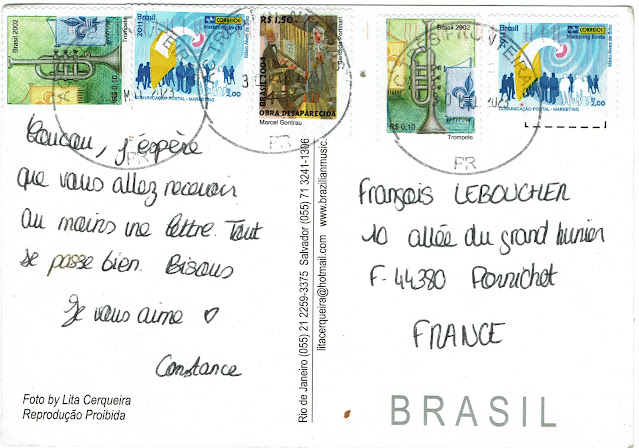 Brasil 2002
Trompete
R$ 0,10
Brasil
CORREIOS
Marketing Direto
COMUNICAÇÃO POSTAL - MARKETING
2,00
R$ 1,50
BRASIL 2004
OBRA DESAPARECIDA
Marcel Gontrau
Brasil 2002
Trompete
R$ 0,10
Brasil
CORREIOS
Marketing Direto
COMUNICAÇÃO POSTAL - MARKETING
2,00
PR
PR
PR
Coucou, j'espère
que vous allez recevoir
au moins une lettre. Tout
se passe bien. Bisous
Je vous aime ♡
Constance
Foto by Lita Cerqueira
Reprodução Proibida
Rio de Janeiro (055) 21 2259-3375 Salvador (055) 71 3241-1306
litacerqueira@hotmail.com www.brazilianmusic.
François LEBOUCHER
10 allée du grand hunier
F-44380 Pornichet
FRANCE
BRASIL